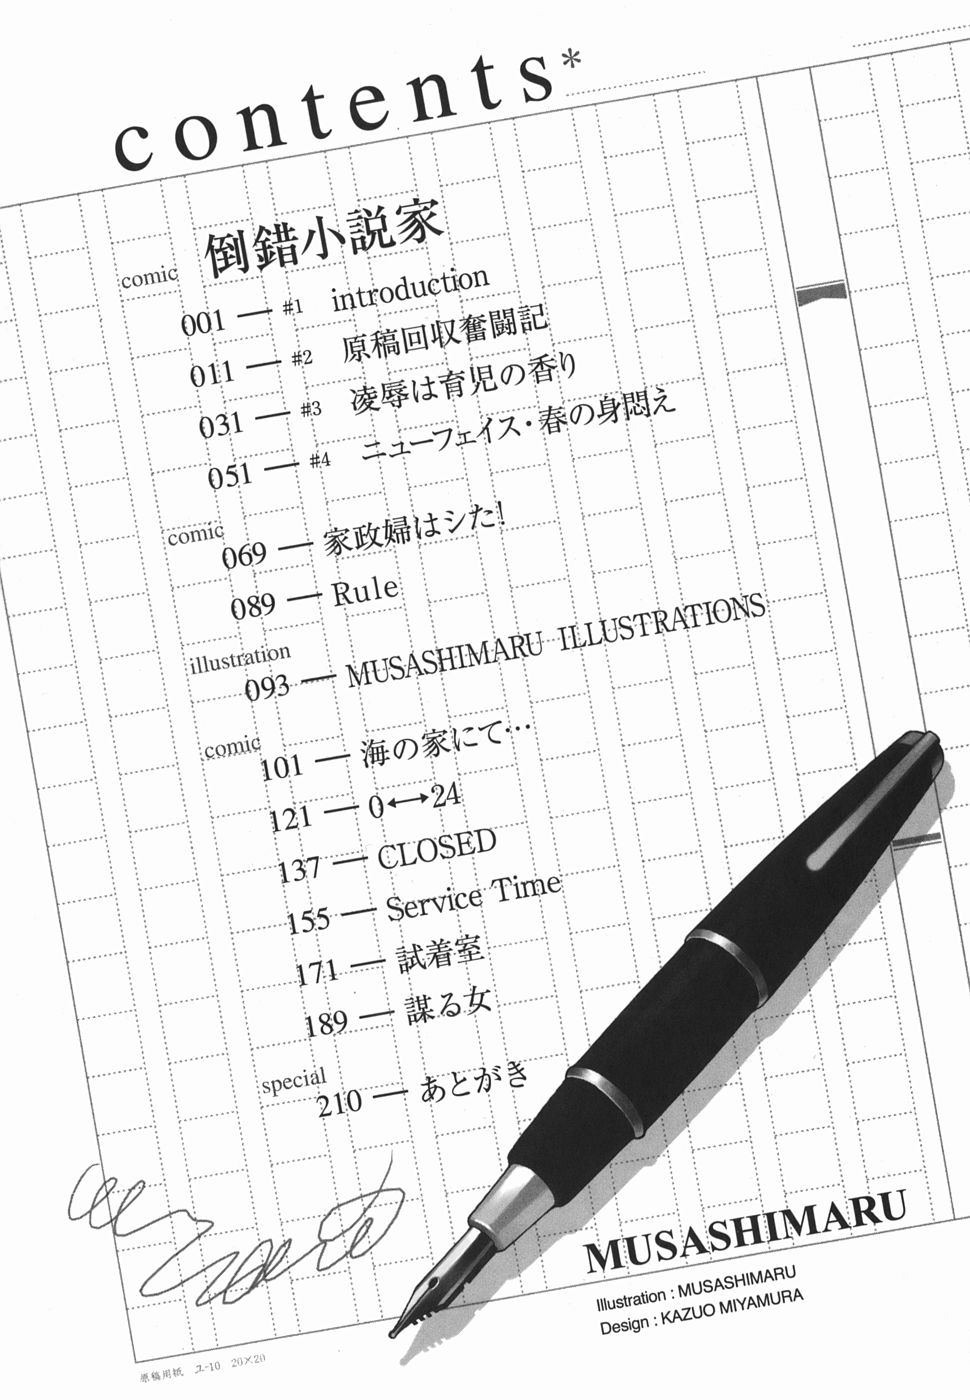 contents*
comic 倒錯小説家
001 — #1 introduction
011 — #2 原稿回収奮闘記
031 — #3 凌辱は育児の香り
051 — #4 ニューフェイス・春の身悶え
comic
069 — 家政婦はシた!
089 — Rule
illustration
093 — MUSASHIMARU ILLUSTRATIONS
comic
101 — 海の家にて…
121 — 0↔24
137 — CLOSED
155 — Service Time
171 — 試着室
189 — 謀る女
special
210 — あとがき
MUSASHIMARU
Illustration : MUSASHIMARU
Design : KAZUO MIYAMURA
原稿用紙 ユ-10 20×20